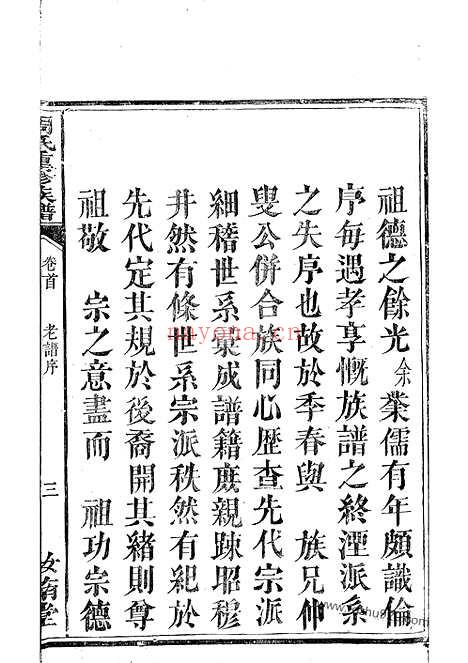 祖德之餘光余業儒有年頗識倫
序每遇孝享慨族譜之終湮派系
之失序也故於季春與 族兄仰
叟公併合族同心歷查先代宗派
細稽世系彙成譜籍庶親踈昭穆
井然有條世系宗派秩然有紀於
先代定其規於後裔開其緒則尊
祖敬 宗之意盡而 祖功宗德
周氏重修族譜
卷首 老譜序 三 汝南堂
nayona.cn